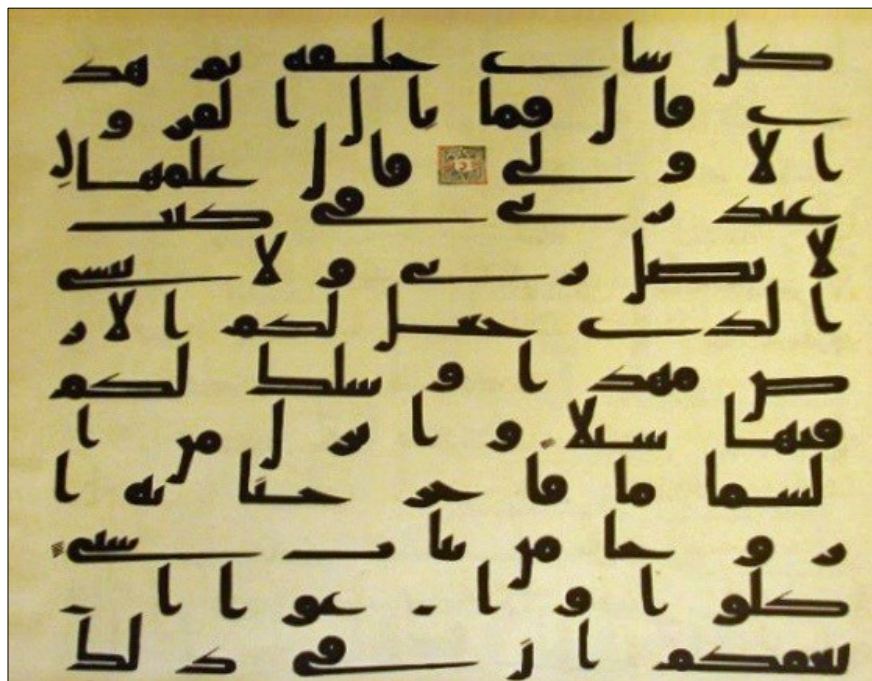 كل شاى خلقه ثم هد
ى قال فما بال القرون
الاولى قال علمها
عند ربى فى كتب
لا يضل ربى ولا ينسى
الذى جعل لكم الار
ض مهدا وسلك لكم
فيها سبلا وانزل من ا
لسما ما فاخرجنا به ا
زوجا من نبات شتى
كلوا وارعوا ا
نعمكم ان فى ذلك